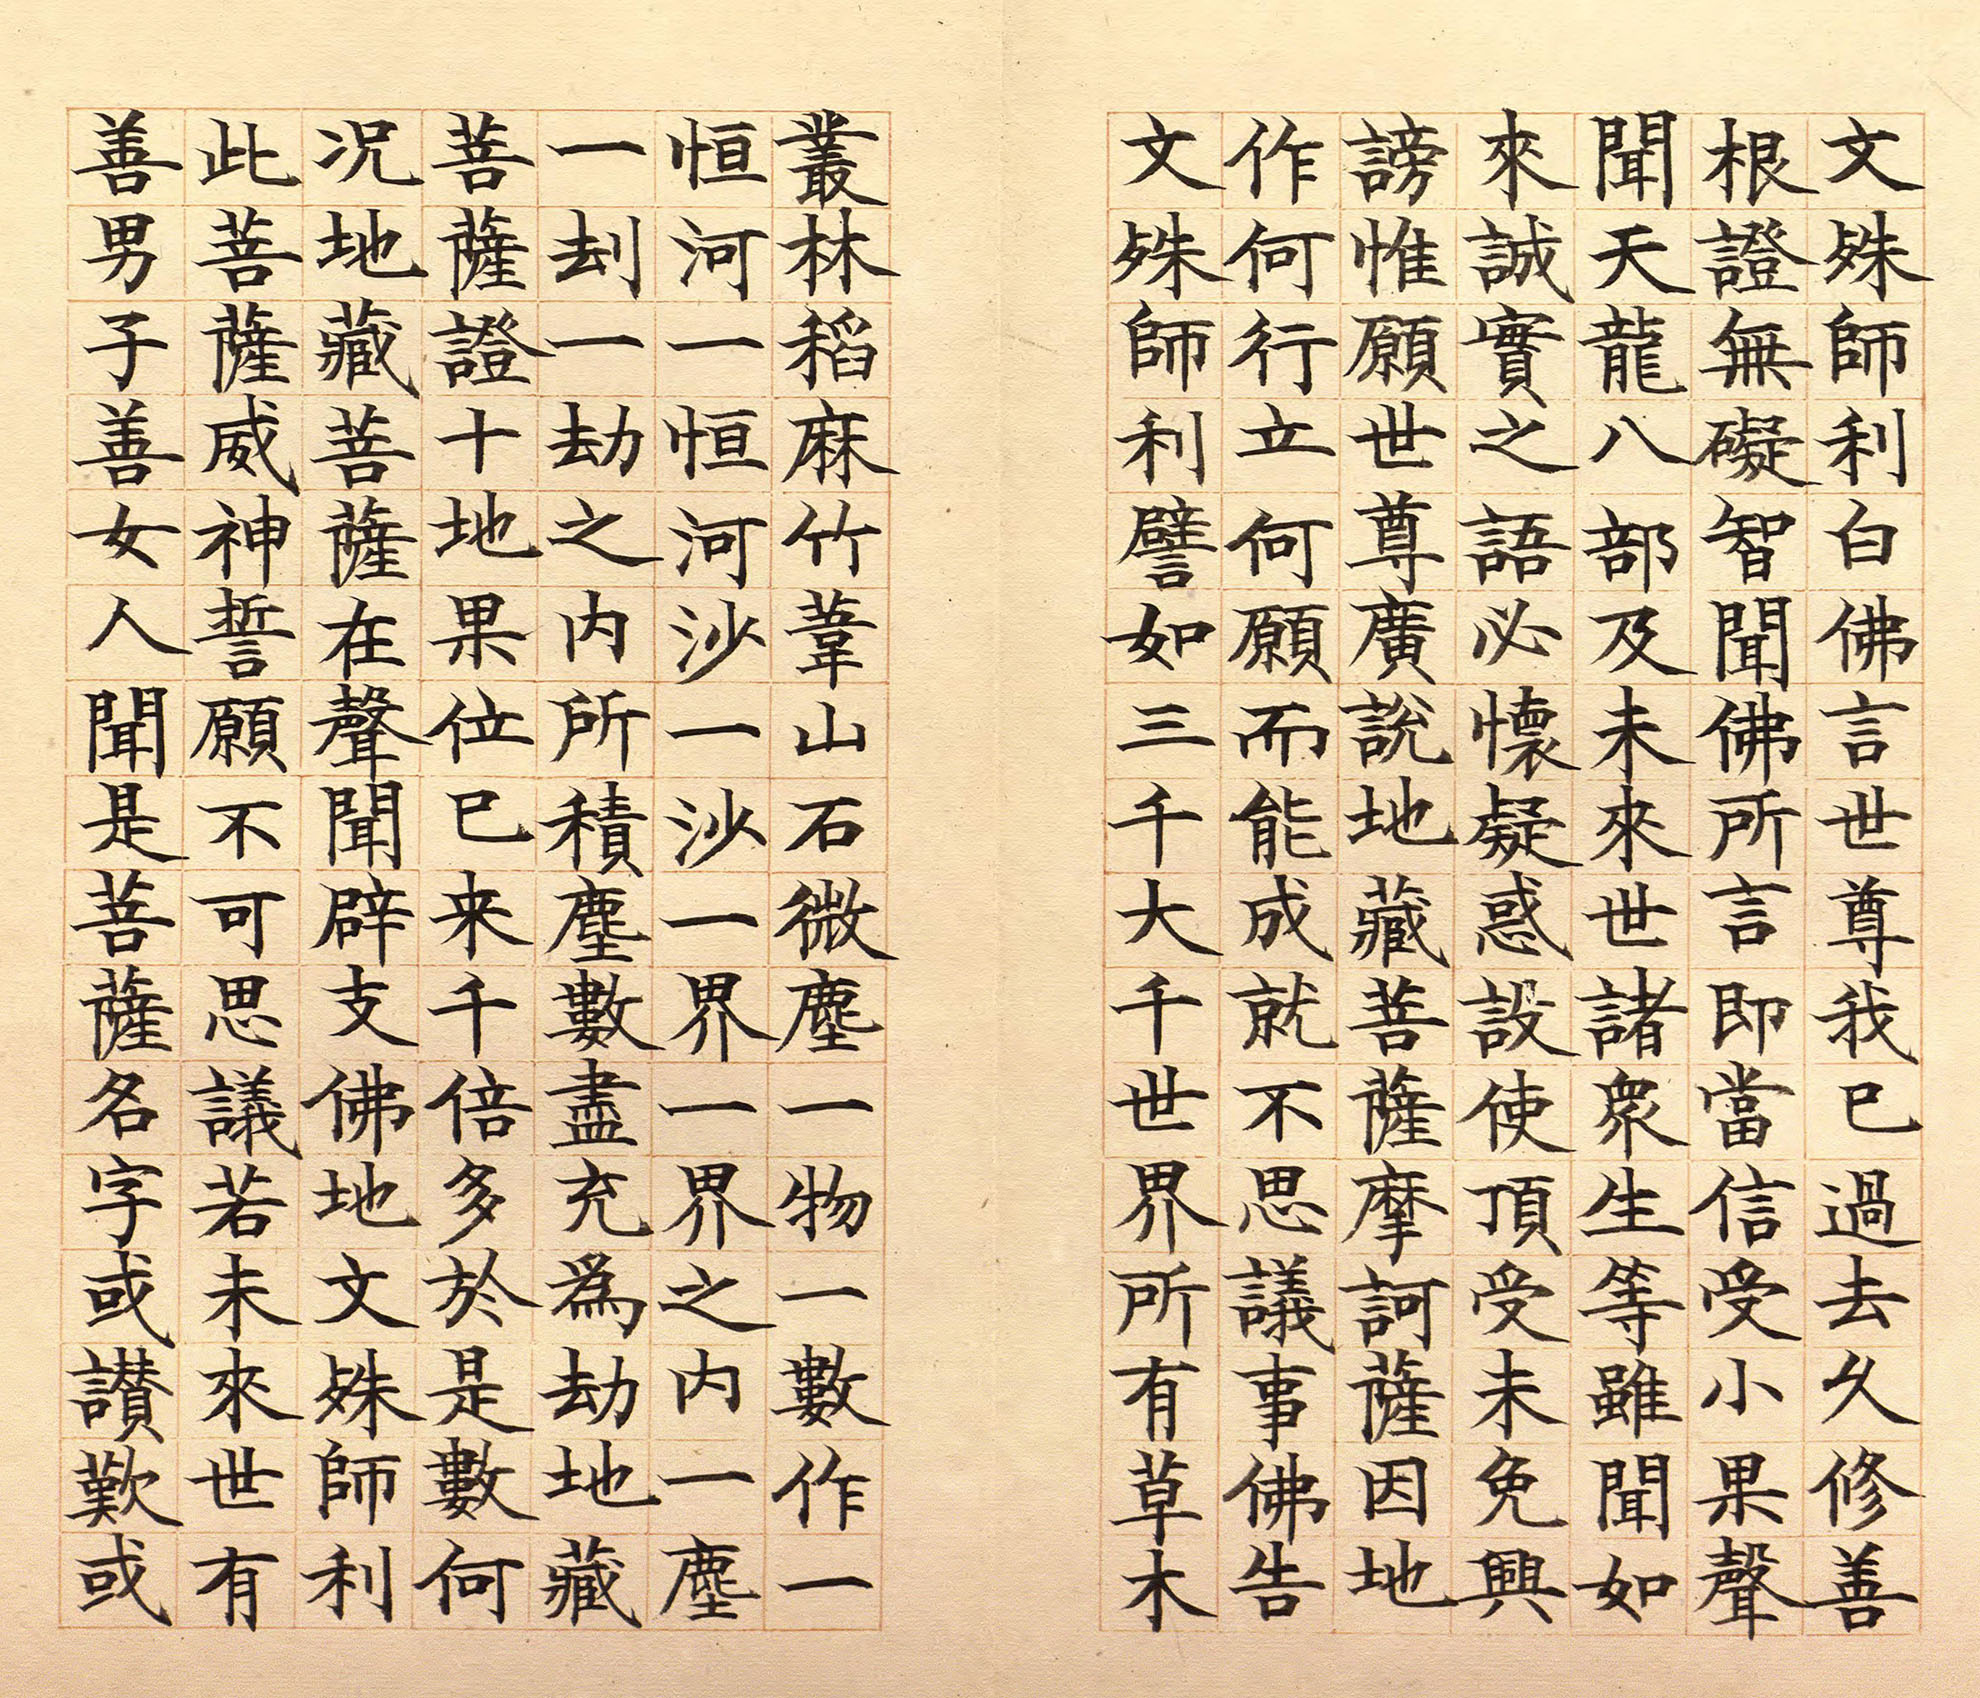 文殊師利白佛言世尊我已過去久修善
根證無礙智聞佛所言即當信受小果聲
聞天龍八部及未來世諸衆生等雖聞如
來誠實之語必懷疑惑設使頂受未免興
謗惟願世尊廣說地藏菩薩摩訶薩因地
作何行立何願而能成就不思議事佛告
文殊師利譬如三千大千世界所有草木
叢林稻麻竹葦山石微塵一物一數作一
恒河一恒河沙一沙一界一界之内一塵
一刦一劫之内所積塵數盡充爲劫地藏
菩薩證十地果位已来千倍多於是數何
况地藏菩薩在聲聞辟支佛地文殊師利
此菩薩威神誓願不可思議若未來世有
善男子善女人聞是菩薩名字或讃歎或